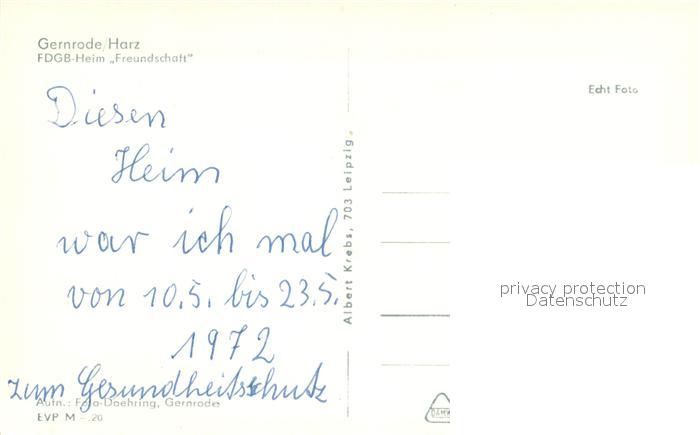 Gernrode/Harz
FDGB-Heim „Freundschaft"
Echt Foto
Diesen
Heim
war ich mal
von 10.5. bis 23.5.
1972
zum Gesundheitsschutz
Aufn.: Foto-Doehring, Gernrode
EVP M -.20
Albert Krebs, 703 Leipzig
privacy protection
Datenschutz